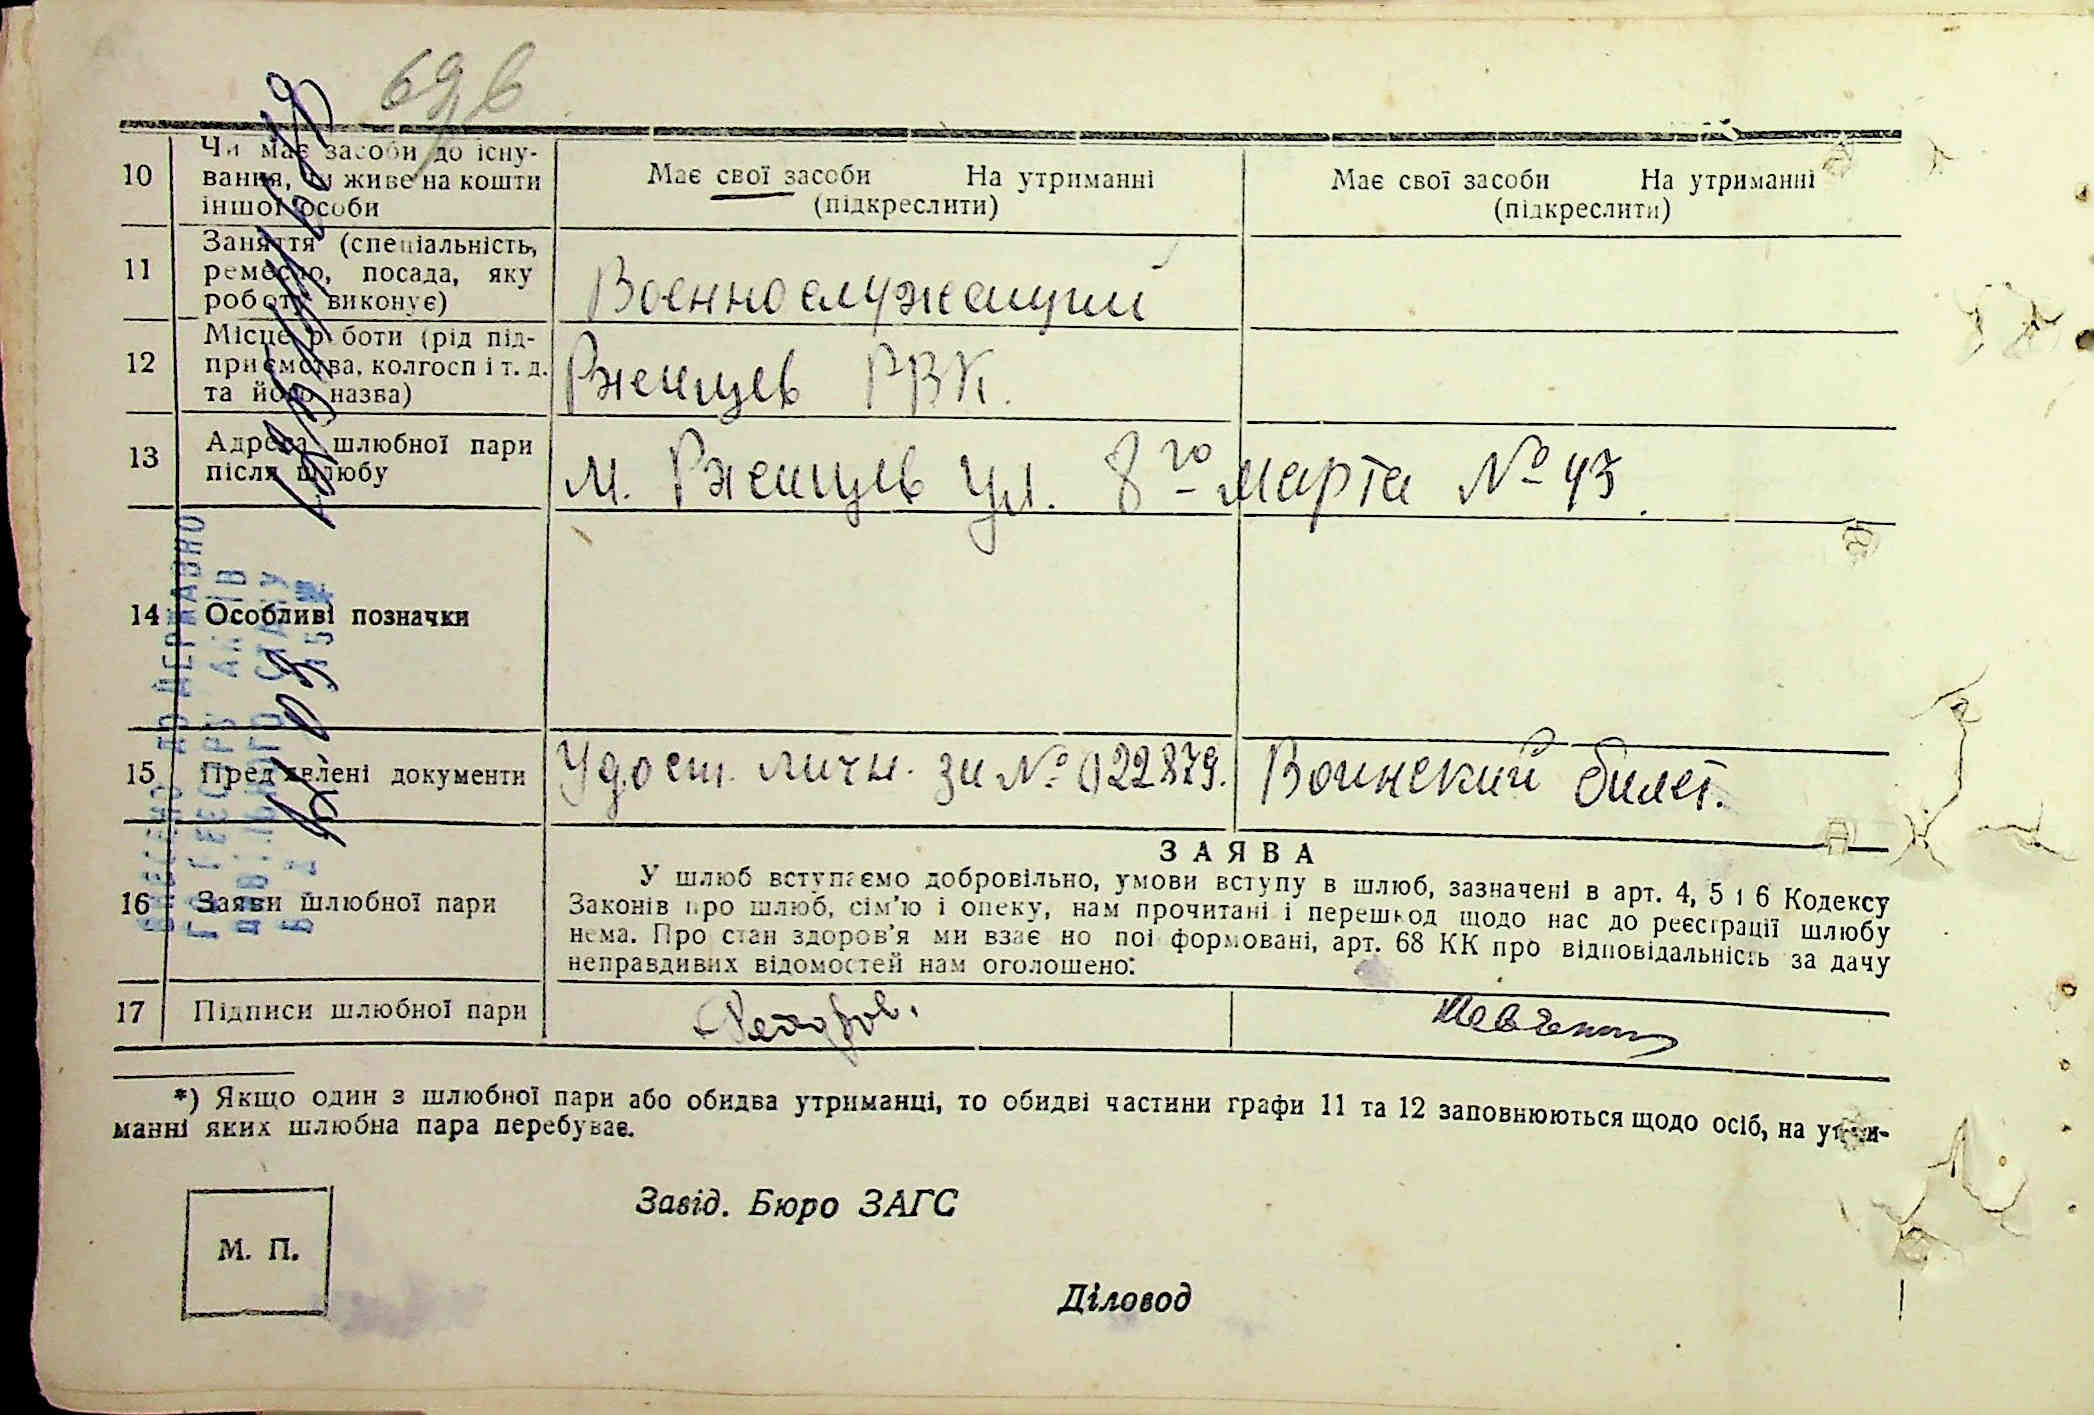 69 б
10
Чи має засоби до існу-
вання, чи живе на кошти
іншої особи
Має свої засоби На утриманні
(підкреслити)
Має свої засоби На утриманні
(підкреслити)
11
Заняття (спеціальність,
ремесло, посада, яку
роботу виконує)
Военнослужащий
12
Місце роботи (рід під-
приємства, колгосп і т. д.
та його назва)
Ржищев РВК.
13
Адреса шлюбної пари
після шлюбу
м. Ржищев ул. 8го марта № 43.
14
Особливі позначки
15
Пред'явлені документи
Удост. личн. за № 022879.
Воинский билет.
16
Заяви шлюбної пари
ЗАЯВА
У шлюб вступаємо добровільно, умови вступу в шлюб, зазначені в арт. 4, 5 і 6 Кодексу
Законів про шлюб, сім'ю і опеку, нам прочитані і перешкод щодо нас до реєстрації шлюбу
нема. Про стан здоров'я ми взаємно поінформовані, арт. 68 КК про відповідальність за дачу
неправдивих відомостей нам оголошено:
17
Підписи шлюбної пари
Федоров.
Шевченко
*) Якщо один з шлюбної пари або обидва утриманці, то обидві частини графи 11 та 12 заповнюються щодо осіб, на утри-
манні яких шлюбна пара перебуває.
Завід. Бюро ЗАГС
М. П.
Діловод
ВНЕСЕНО ДО ДЕРЖАВНО
ГО РЕЄСТРУ АКТІВ
ЦИВІЛЬНОГО СТАНУ